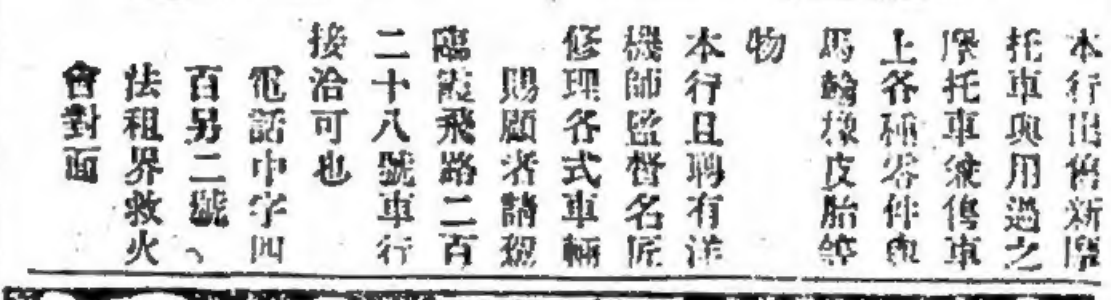 本行出售新摩
托車與用過之
摩托車兼傳車
上各種零件與
馬輪橡皮胎等
物
本行且聘有洋
機師監督名匠
修理各式車輛
賜顧者請慇
臨霞飛路二百
二十八號車行
接洽可也
電話中字四
百另二號、
法租界救火
會對面